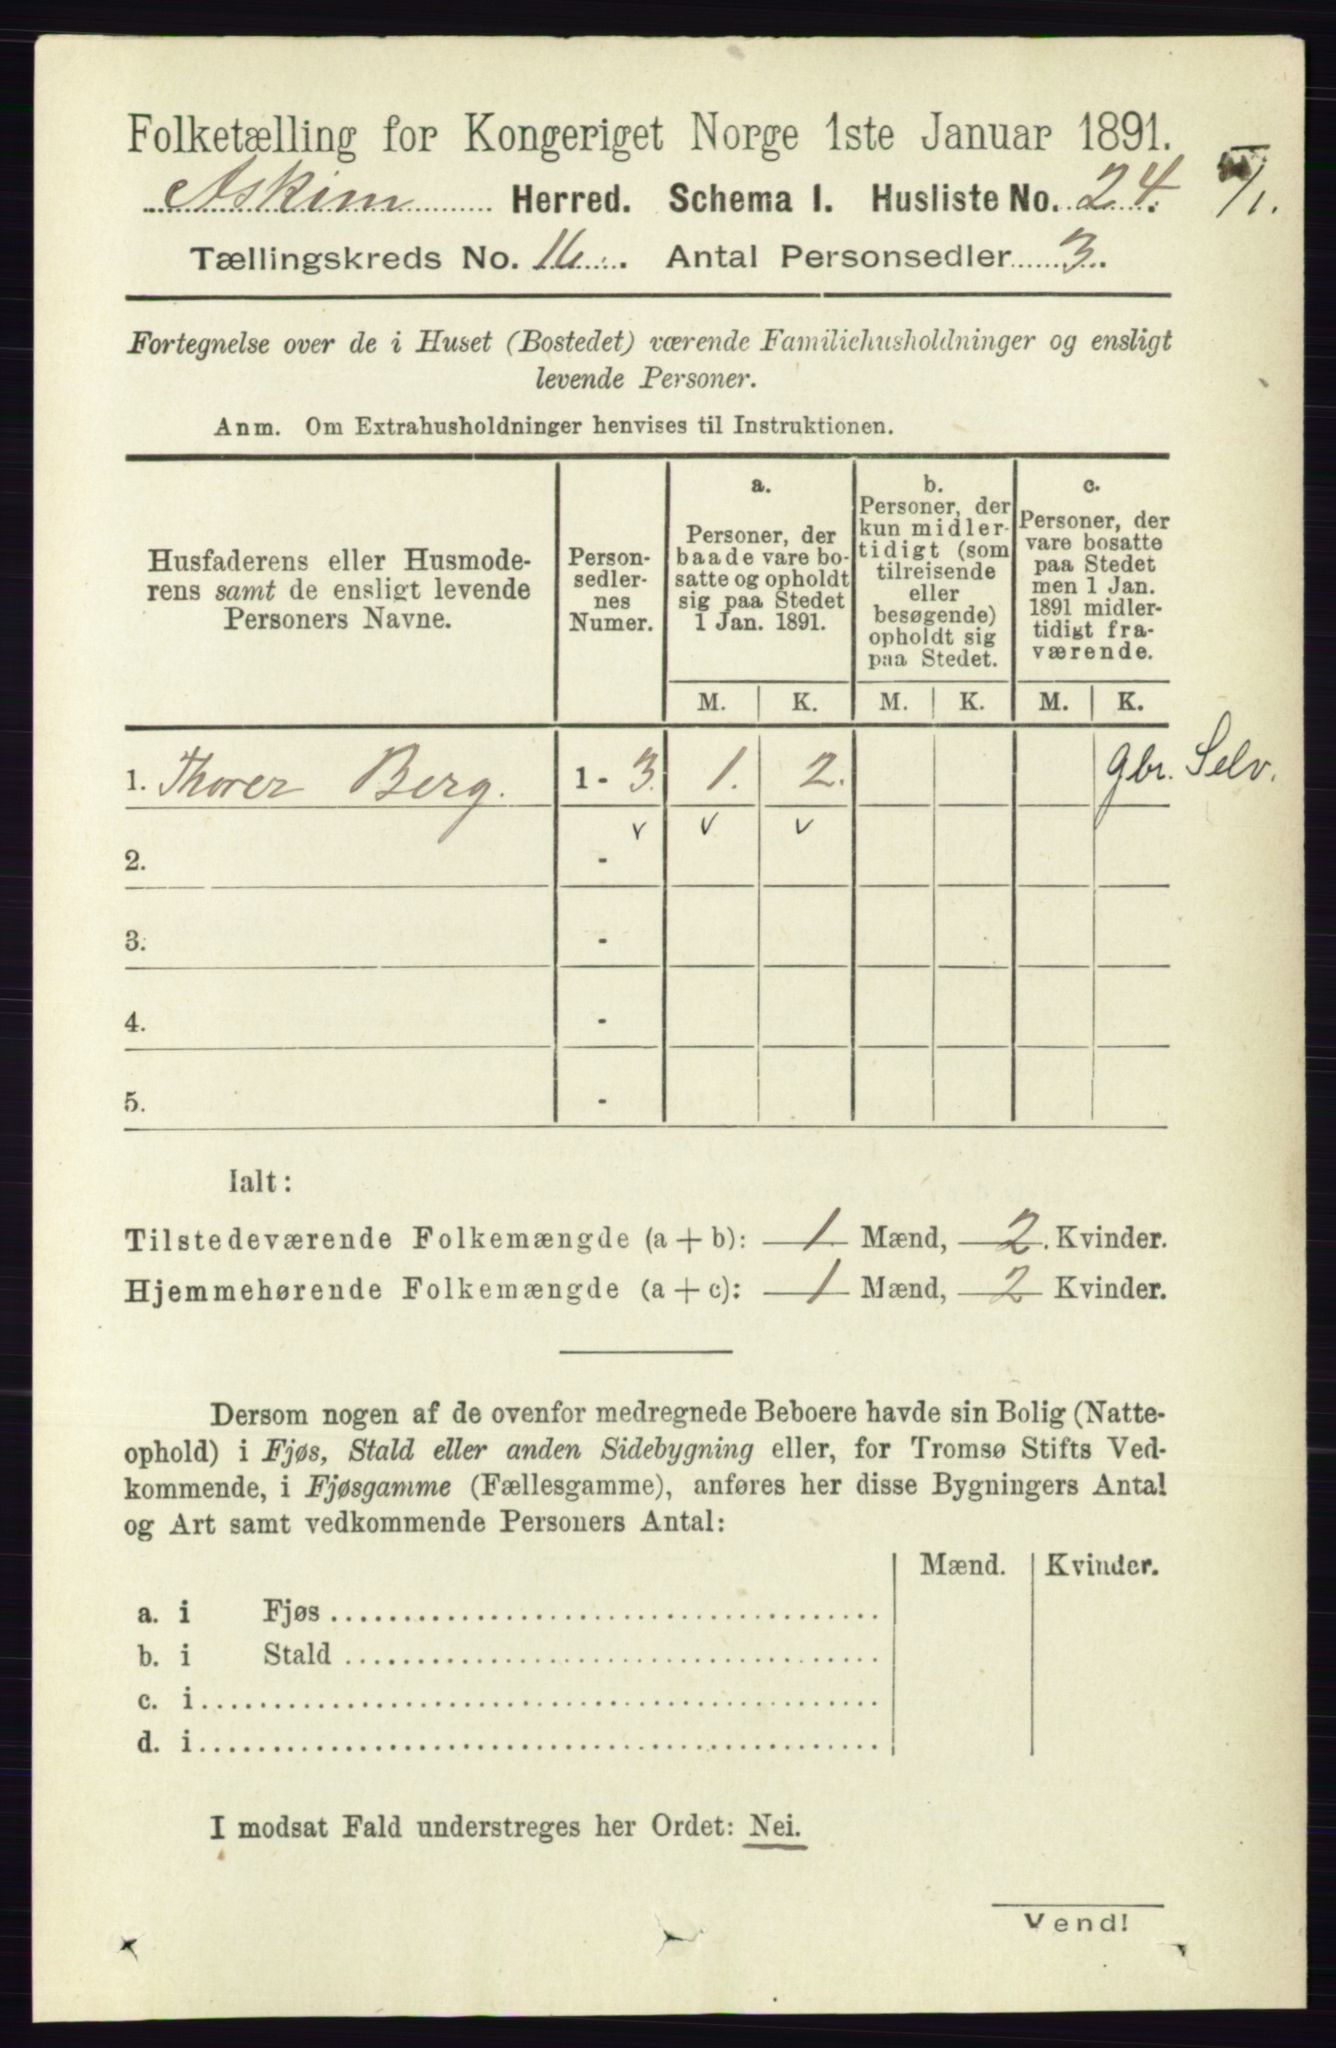 Folketælling for Kongeriget Norge 1ste Januar 1891.
Askim Herred. Schema I. Husliste No. 24.
Tællingskreds No. 16. Antal Personsedler 3.
Fortegnelse over de i Huset (Bostedet) værende Familiehusholdninger og ensligt
levende Personer.
Anm. Om Extrahusholdninger henvises til Instruktionen.
Husfaderens eller Husmode-
rens samt de ensligt levende
Personers Navne.
Person-
sedler-
nes
Numer.
a.
Personer, der
baade vare bo-
satte og opholdt
sig paa Stedet
1 Jan. 1891.
b.
Personer, der
kun midler-
tidigt (som
tilreisende
eller
besøgende)
opholdt sig
paa Stedet.
c.
Personer, der
vare bosatte
paa Stedet
men 1 Jan.
1891 midler-
tidigt fra-
værende.
M. K. M. K. M. K.
1. Thorer Berg. 1 - 3. 1. 2. gbr. Selv.
v v v
2. -
3. -
4. -
5. -
Ialt:
Tilstedeværende Folkemængde (a + b): 1 Mænd, 2. Kvinder.
Hjemmehørende Folkemængde (a + c): 1 Mænd, 2 Kvinder.
Dersom nogen af de ovenfor medregnede Beboere havde sin Bolig (Natte-
ophold) i Fjøs, Stald eller anden Sidebygning eller, for Tromsø Stifts Ved-
kommende, i Fjøsgamme (Fællesgamme), anføres her disse Bygningers Antal
og Art samt vedkommende Personers Antal:
Mænd. Kvinder.
a. i Fjøs
b. i Stald
c. i
d. i
I modsat Fald understreges her Ordet: Nei.
Vend!